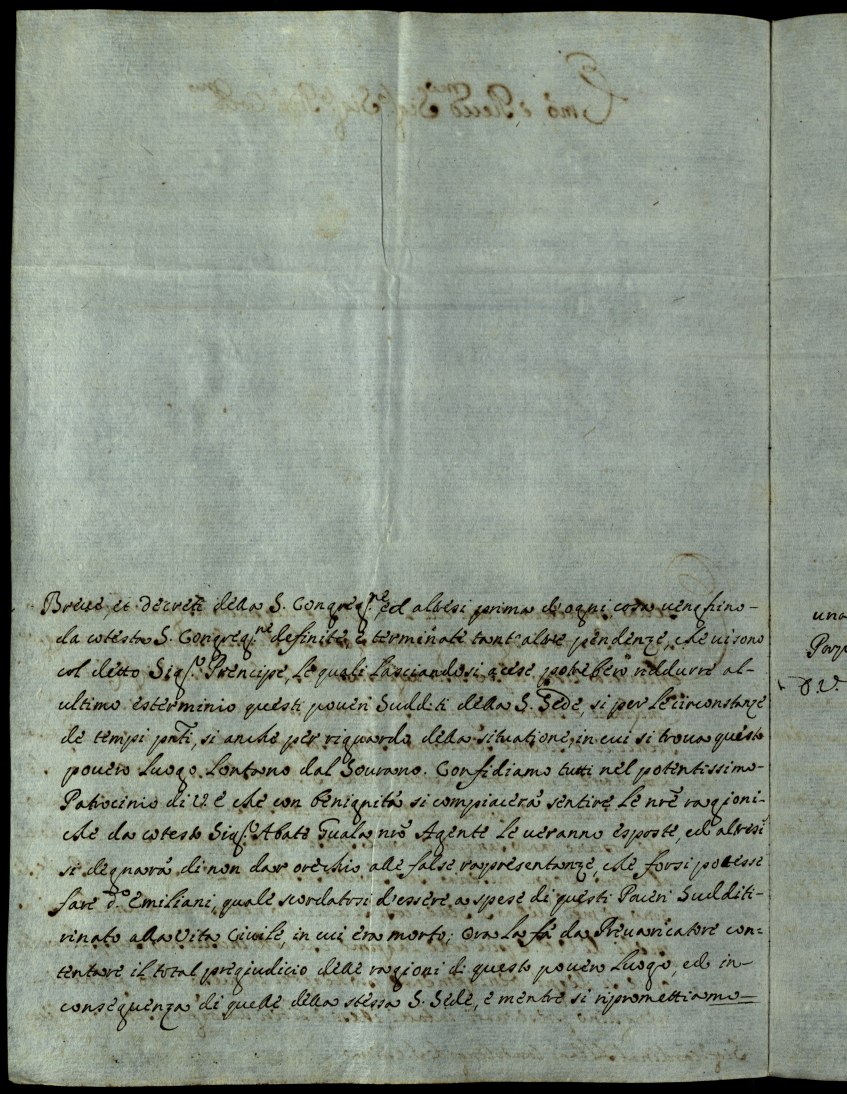 Breve, et decreti della S. Congreg.ne ed altresi prima d'ogni cosa venghino
da cotesta S. Congreg.ne definite, e terminate tant'altre pendenze, che vi sono
col detto Sig.r Prencipe, le quali lasciandosi accese, potrebero riddurre al-
ultimo esterminio questi poveri Sudditi della S. Sede, si per le circonstanze
de tempi pnti, si anche per riguardo della situatione, in cui si trova questo
povero Luogo Lontano dal Sourano. Confidiamo tutti nel potentissimo
Patrocinio di V. E che con benignità si compiacerà sentire le nre ragioni
che da cotesto Sig.r Abate Guala nro Agente le veranno esposte, ed altresi
si degnarà di non dar orechio alle false rapresentanze, che forsi potesse
fare d.o Emiliani, quale scordatosi d'essere a spese di questi Poveri Sudditi
rinato alla Vita Civile, in cui era morto; ora la fà da Prevaricatore con
tentare il total pregiudicio delle ragioni di questo povero Luogo, ed in
consequenza di quelle della stessa S. Sede, e mentre si ripromettiamo
una
D V.